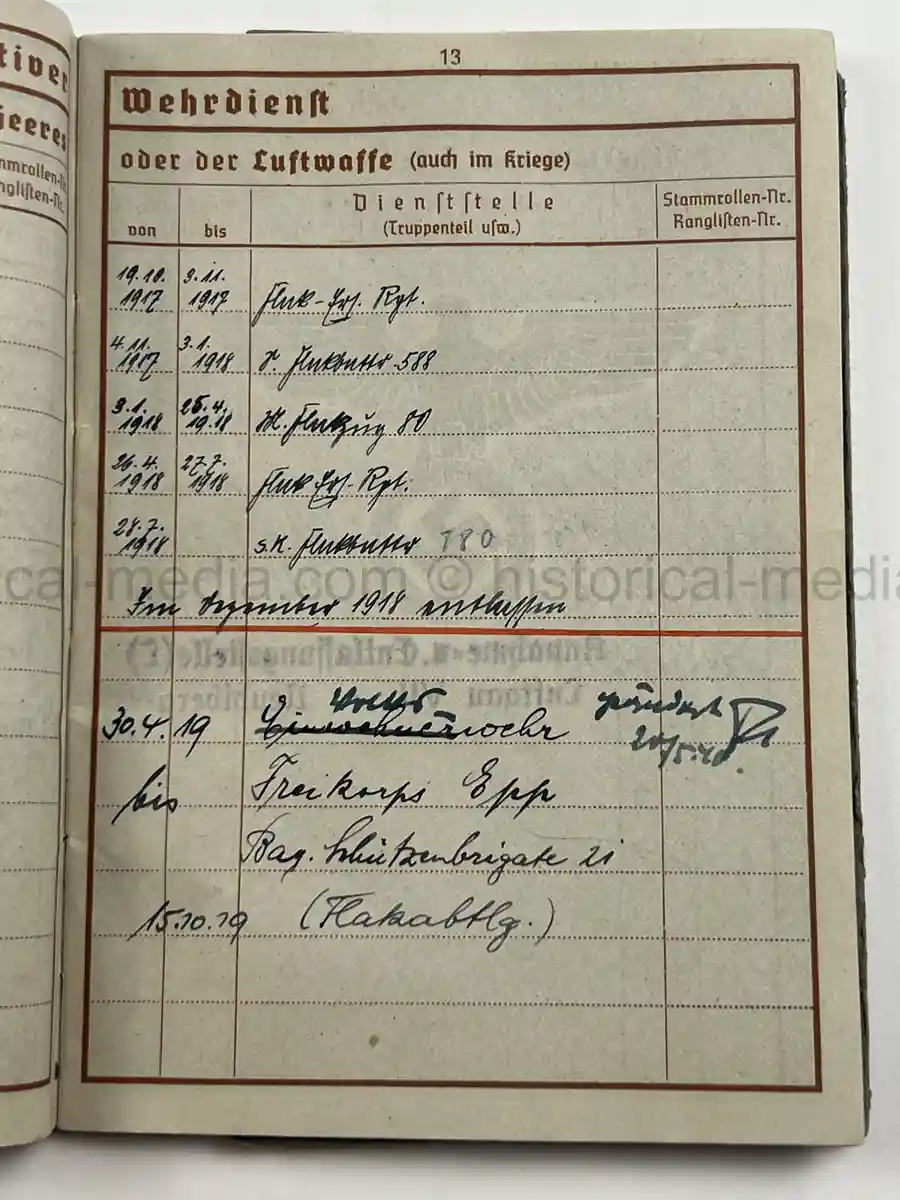 13
tiver
Wehrdienst
heeres
oder der Luftwaffe (auch im Kriege)
von
bis
Dienststelle
(Truppenteil usw.)
Stammrollen-Nr.
Ranglisten-Nr.
19.10. 1917
3.11. 1917
Flak-Ers. Rgt.
4.11. 1917
3.1. 1918
Flakbattr 588
3.1. 1918
25.4. 1918
M. Flakzug 80
26.4. 1918
27.7. 1918
Flak Ers. Rgt.
28.7. 1918
s.K. Flakbattr 780
Im Dezember 1918 entlassen
historical-media.com © historical-media
Volks geändert
30.4.19 Einwohnerwehr 20/5.40.
bis Freikorps Epp
Bay. Schützenbrigate 21
15.10.19 (Flakabtlg.)